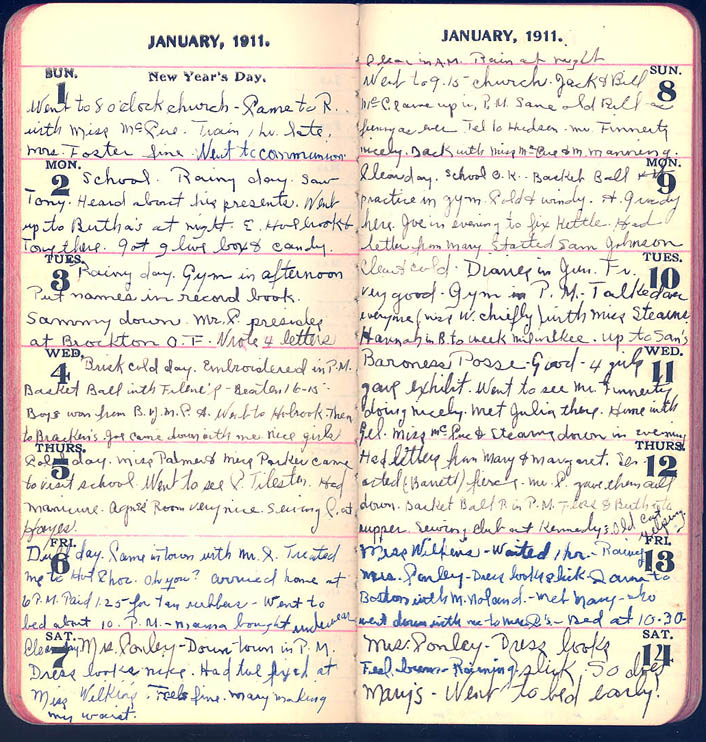 JANUARY, 1911.
SUN.
1
New Year's Day.
Went to 8 o'clock church - Came to R.
with Miss McCue. Train 1 hr. late.
Mrs. Foster fine. Went to communion.
MON.
2
School. Rainy day. Saw
Tony. Heard about his presents. Went
up to Bertha's at night. E. Holbrook &
Tony there. Got glove box & candy.
TUES.
3
Rainy day. Gym in afternoon
Put names in record book.
Sammy down. Mr. S. presides
at Brockton O.F. Wrote 4 letters
WED.
4
Brisk cold day. Embroidered in P.M.
Basket Ball with Filene's - Beaten 16-15.
Boys was from B.Y.M.C.A. Went to Holbrook then
to Bracken's. Joe came down with me. Nice girls
THURS.
5
Cold day. Miss Palmer & Miss Parker came
to visit school. Went to see P. Tilesten. Had
manicure. Agnes' Room very nice. Sewing C. at
Hayes.
FRI.
6
Dull day. Came in town with Mr. S. Treated
me to Hot Choc. Oh you? arrived home at
6 P.M. Paid 1.25 for Tan rubbers - Went to
bed about 10. P.M. - Mama bought underwear
SAT.
7
Clear day Mrs. Conley - Down town in P.M.
Dress looks nice. Had tooth fixed at
Miss Wilkins. Feels fine. Mary making
my waist.
JANUARY, 1911.
Clear in A.M. Rain at night
SUN.
8
Went to 9.15 church. Jack & Bill
McC came up in P.M. Same old Bill as
funny as ever. Tel to Hudson. Mr. Finnerty
nicely. Back with Miss McCue & M. Manning.
MON.
9
Clear day. School O.K. Basket Ball
practice in gym. Cold & windy. H. Grady
here. Joe in evening to fix Kettle. Had
letter from Mary. Started Sam Johnson
TUES.
10
Clear & cold. Dianes in Jun. Fr.
very good. Gym in P.M. Talked over
everyone (Miss W. chiefly) with Miss Stearns
Hannah in B. to week Milwilkee. Up to San's
WED.
11
Baroness Posse - Good - 4 girls
gave exhibit. Went to see Mr. Finnerty
doing nicely. Met Julia there. Home with
Gel. Miss McCue & Stearns down in evening
THURS.
12
Had letters from Mary & Margaret.
acted (Barrett) fierce. Mr. S. gave them all
down. Basket Ball P. in P.M. Flora & Bertha to
supper. Sewing club at Kennedy's. Old Cat
Helping
FRI.
13
Miss Wilkins - Waited 1 hr. - Rainy
Mrs. Conley - Dress looks slick. Came to
Boston with M. Noland. - Met Mary - who
went down with me to Mc C's - Bed at 10.30-
SAT.
14
Mrs. Conley - Dress looks
Feel bum - Raining slick. So does
Mary's - Went to bed early.